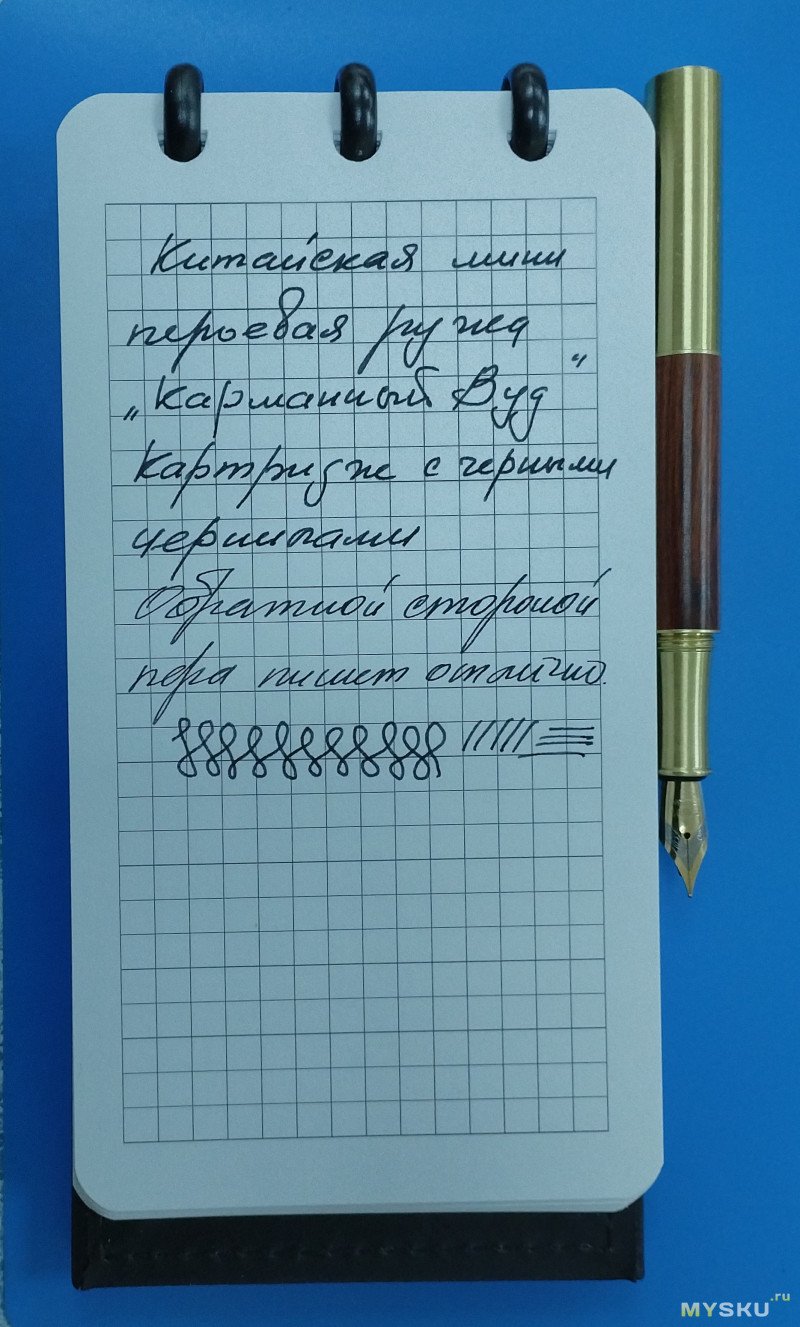 Китайская мини
перьевая ручка
„Карманный Вуд"
Картридж с черными
чернилами
Обратной стороной
пера пишет отлично.
MYSKU.ru